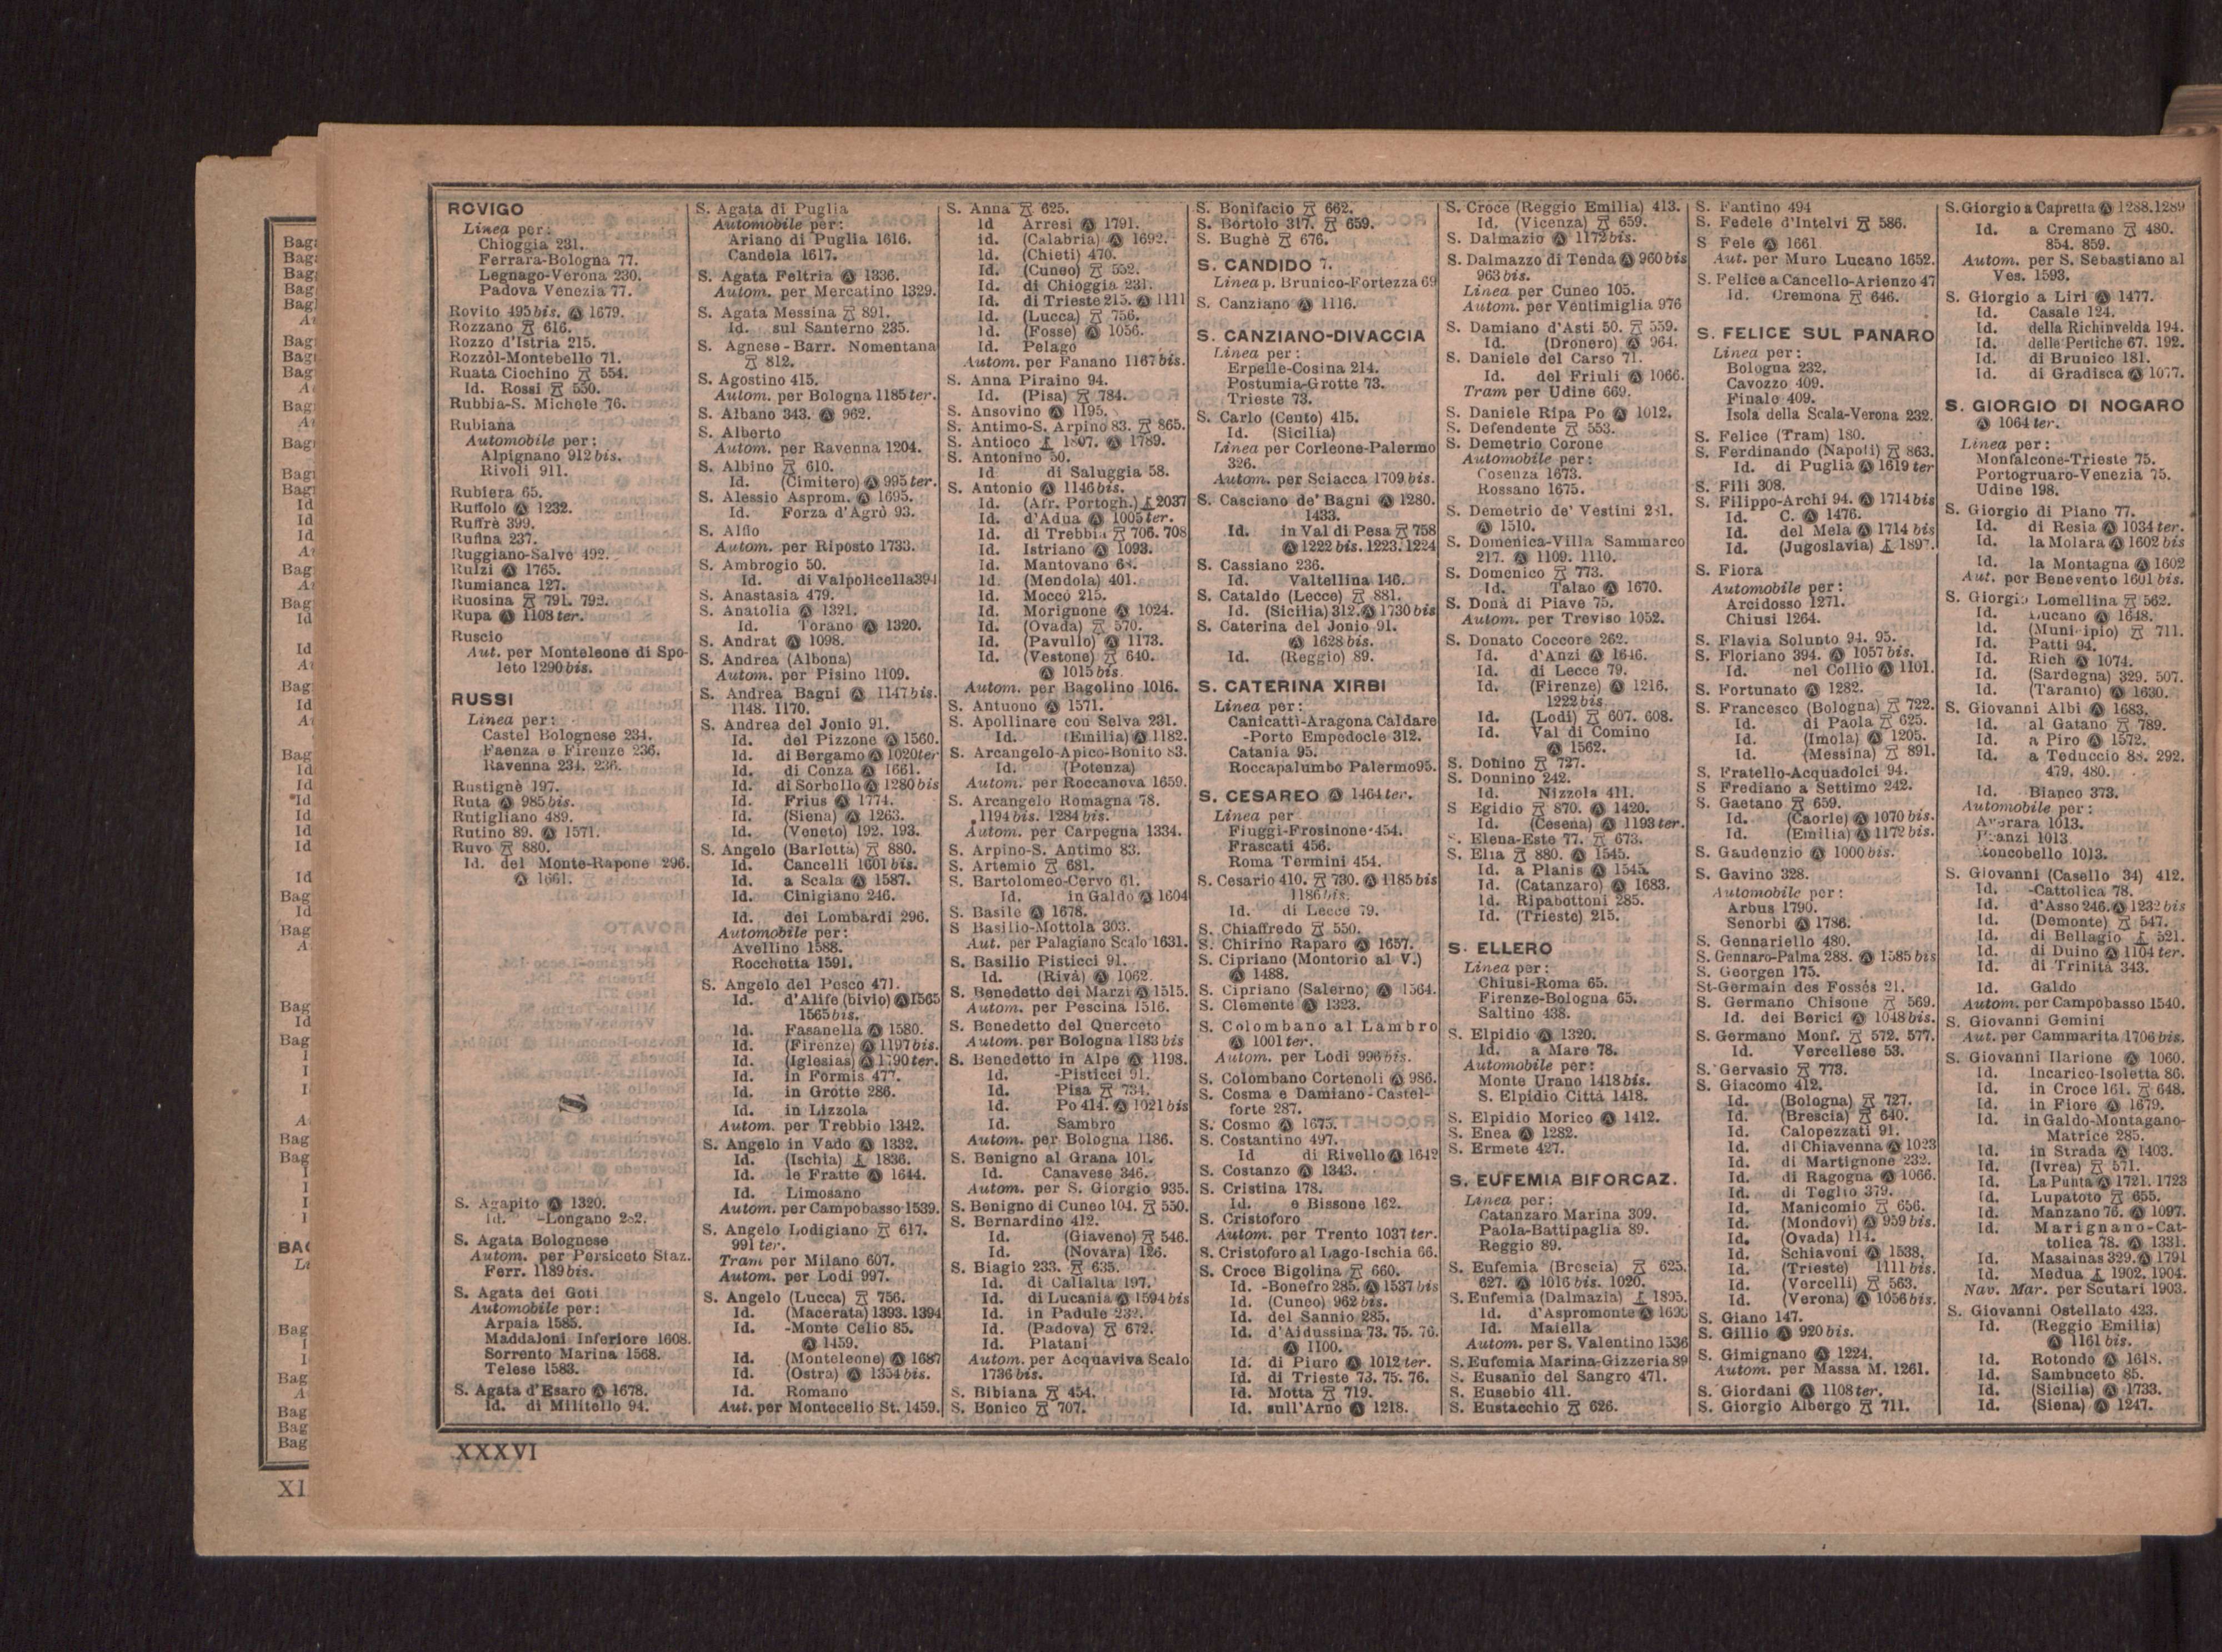 ROVIGO
Linea per:
Chioggia 231.
Ferrara-Bologna 77.
Legnago-Verona 230.
Padova Venezia 77.
Rovito 495 bis. Ⓐ 1679.
Rozzano 616.
Rozzo d'Istria 215.
Rozzòl-Montebello 71.
Ruata Ciochino 554.
Id. Rossi 550.
Rubbia-S. Michele 76.
Rubiana
Automobile per:
Alpignano 912 bis.
Rivoli 911.
Rubiera 65.
Ruffolo Ⓐ 1232.
Ruffrè 399.
Rufina 237.
Ruggiano-Salve 492.
Rulzi Ⓐ 1765.
Rumianca 127.
Ruosina 791. 792.
Rupa Ⓐ 1108 ter.
Ruscio
Aut. per Monteleone di Spo-
leto 1290 bis.
RUSSI
Linea per:
Castel Bolognese 234.
Faenza e Firenze 236.
Ravenna 234. 236.
Rustignè 197.
Ruta Ⓐ 985 bis.
Rutigliano 489.
Rutino 89. Ⓐ 1571.
Ruvo 880.
Id. del Monte-Rapone 296.
Ⓐ 1661.
S
S. Agapito Ⓐ 1320.
Id. -Longano 282.
S. Agata Bolognese
Autom. per Persiceto Staz.
Ferr. 1189 bis.
S. Agata dei Goti
Automobile per:
Arpaia 1585.
Maddaloni Inferiore 1608.
Sorrento Marina 1568.
Telese 1583.
S. Agata d'Esaro Ⓐ 1678.
Id. di Militello 94.
S. Agata di Puglia
Automobile per:
Ariano di Puglia 1616.
Candela 1617.
S. Agata Feltria Ⓐ 1336.
Autom. per Mercatino 1329.
S. Agata Messina 891.
Id. sul Santerno 235.
S. Agnese-Barr. Nomentana
812.
S. Agostino 415.
Autom. per Bologna 1185 ter.
S. Albano 343. Ⓐ 962.
S. Alberto
Autom. per Ravenna 1204.
S. Albino 610.
Id. (Cimitero) Ⓐ 995 ter.
S. Alessio Asprom. Ⓐ 1695.
Id. Forza d'Agrò 93.
S. Alfio
Autom. per Riposto 1733.
S. Ambrogio 50.
Id. di Valpolicella 394
S. Anastasia 479.
S. Anatolia Ⓐ 1321.
Id. Torano Ⓐ 1320.
S. Andrat Ⓐ 1098.
S. Andrea (Albona)
Autom. per Pisino 1109.
S. Andrea Bagni Ⓐ 1147 bis.
1148. 1170.
S. Andrea del Jonio 91.
Id. del Pizzone Ⓐ 1560.
Id. di Bergamo Ⓐ 1020 ter
Id. di Conza Ⓐ 1661.
Id. di Sorbello Ⓐ 1280 bis
Id. Frius Ⓐ 1774.
Id. (Siena) Ⓐ 1263.
Id. (Veneto) 192. 193.
S. Angelo (Barletta) 880.
Id. Cancelli 1601 bis.
Id. a Scala Ⓐ 1587.
Id. Cinigiano 246.
Id. dei Lombardi 296.
Automobile per:
Avellino 1588.
Rocchetta 1591.
S. Angelo del Pesco 471.
Id. d'Alife (bivio) Ⓐ 1565
1565 bis.
Id. Fasanella Ⓐ 1580.
Id. (Firenze) Ⓐ 1197 bis.
Id. (Iglesias) Ⓐ 1790 ter.
Id. in Formis 477.
Id. in Grotte 286.
Id. in Lizzola
Autom. per Trebbio 1342.
S. Angelo in Vado Ⓐ 1332.
Id. (Ischia) 1836.
Id. le Fratte Ⓐ 1644.
Id. Limosano
Autom. per Campobasso 1539.
S. Angelo Lodigiano 617.
991 ter.
Tram per Milano 607.
Autom. per Lodi 997.
S. Angelo (Lucca) 756.
Id. (Macerata) 1393. 1394
Id. -Monte Celio 85.
Ⓐ 1459.
Id. (Monteleone) Ⓐ 1687
Id. (Ostra) Ⓐ 1354 bis.
Id. Romano
Aut. per Montecelio St. 1459.
S. Anna 625.
Id Arresi Ⓐ 1791.
id. (Calabria) Ⓐ 1692.
Id. (Chieti) 470.
Id. (Cuneo) 552.
Id. di Chioggia 231.
Id. di Trieste 215. Ⓐ 1111
Id. (Lucca) 756.
Id. (Fosse) Ⓐ 1056.
Id. Pelago
Autom. per Fanano 1167 bis.
S. Anna Piraino 94.
Id. (Pisa) 784.
S. Ansovino Ⓐ 1195.
S. Antimo-S. Arpino 83. 865.
S. Antioco 1807. Ⓐ 1789.
S. Antonino 50.
Id di Saluggia 58.
S. Antonio Ⓐ 1146 bis.
Id. (Afr. Portogh.) 2037
Id. d'Adua Ⓐ 1005 ter.
Id. di Trebbia 706. 708
Id. Istriano Ⓐ 1093.
Id. Mantovano 68.
Id. (Mendola) 401.
Id. Moccò 215.
Id. Morignone Ⓐ 1024.
Id. (Ovada) 570.
Id. (Pavullo) Ⓐ 1173.
Id. (Vestone) 640.
Ⓐ 1015 bis.
Autom. per Bagolino 1016.
S. Antuono Ⓐ 1571.
S. Apollinare con Selva 231.
Id. (Emilia) Ⓐ 1182.
S. Arcangelo-Apico-Bonito 83.
Id. (Potenza)
Autom. per Roccanova 1659.
S. Arcangelo Romagna 78.
1194 bis. 1284 bis.
Autom. per Carpegna 1334.
S. Arpino-S. Antimo 83.
S. Artemio 681.
S. Bartolomeo-Cervo 61.
Id. in Galdo Ⓐ 1604
S. Basile Ⓐ 1678.
S Basilio-Mottola 303.
Aut. per Palagiano Scalo 1631.
S. Basilio Pisticci 91.
Id. (Rivà) Ⓐ 1062.
S. Benedetto dei Marzi Ⓐ 1515.
Autom. per Pescina 1516.
S. Benedetto del Querceto
Autom. per Bologna 1183 bis
S. Benedetto in Alpe Ⓐ 1198.
Id. -Pisticci 91.
Id. Pisa 734.
Id. Po 414. Ⓐ 1021 bis
Id. Sambro
Autom. per Bologna 1186.
S. Benigno al Grana 101.
Id. Canavese 346.
Autom. per S. Giorgio 935.
S. Benigno di Cuneo 104. 550.
S. Bernardino 412.
Id. (Giaveno) 546.
Id. (Novara) 126.
S. Biagio 233. 635.
Id. di Callalta 197.
Id. di Lucania Ⓐ 1594 bis
Id. in Padule 232.
Id. (Padova) 672.
Id. Platani
Autom. per Acquaviva Scalo
1736 bis.
S. Bibiana 454.
S. Bonico 707.
S. Bonifacio 662.
S. Bortolo 317. 659.
S. Bughè 676.
S. CANDIDO 7.
Linea p. Brunico-Fortezza 69
S. Canziano Ⓐ 1116.
S. CANZIANO-DIVACCIA
Linea per:
Erpelle-Cosina 214.
Postumia-Grotte 73.
Trieste 73.
S. Carlo (Cento) 415.
Id. (Sicilia)
Linea per Corleone-Palermo
326.
Autom. per Sciacca 1709 bis.
S. Casciano de' Bagni Ⓐ 1280.
1433.
Id. in Val di Pesa 758
Ⓐ 1222 bis. 1223. 1224
S. Cassiano 236.
Id. Valtellina 146.
S. Cataldo (Lecce) 881.
Id. (Sicilia) 312. Ⓐ 1730 bis
S. Caterina del Jonio 91.
Ⓐ 1628 bis.
Id. (Reggio) 89.
S. CATERINA XIRBI
Linea per:
Canicatti-Aragona Caldare
-Porto Empedocle 312.
Catania 95.
Roccapalumbo Palermo 95.
S. CESAREO Ⓐ 1464 ter.
Linea per
Fiuggi-Frosinone 454.
Frascati 456.
Roma Termini 454.
S. Cesario 410. 730. Ⓐ 1185 bis
1186 bis.
Id. di Lecce 79.
S. Chiaffredo 550.
S. Chirino Raparo Ⓐ 1657.
S. Cipriano (Montorio al V.)
Ⓐ 1488.
S. Cipriano (Salerno) Ⓐ 1564.
S. Clemente Ⓐ 1323.
S. Colombano al Lambro
Ⓐ 1001 ter.
Autom. per Lodi 996 bis.
S. Colombano Cortenoli Ⓐ 986.
S. Cosma e Damiano-Castel-
forte 287.
S. Cosmo Ⓐ 1675.
S. Costantino 497.
Id di Rivello Ⓐ 1642
S. Costanzo Ⓐ 1343.
S. Cristina 178.
Id. e Bissone 162.
S. Cristoforo
Autom. per Trento 1037 ter.
S. Cristoforo al Lago-Ischia 66.
S. Croce Bigolina 660.
Id. -Bonefro 285. Ⓐ 1537 bis
Id. (Cuneo) 962 bis.
Id. del Sannio 285.
Id. d'Aidussina 73. 75. 76.
Ⓐ 1100.
Id. di Piuro Ⓐ 1012 ter.
Id. di Trieste 73. 75. 76.
Id. Motta 719.
Id. sull'Arno Ⓐ 1218.
S. Croce (Reggio Emilia) 413.
Id. (Vicenza) 659.
S. Dalmazio Ⓐ 1172 bis.
S. Dalmazzo di Tenda Ⓐ 960 bis
963 bis.
Linea per Cuneo 105.
Autom. per Ventimiglia 976
S. Damiano d'Asti 50. 559.
Id. (Dronero) Ⓐ 964.
S. Daniele del Carso 71.
Id. del Friuli Ⓐ 1066.
Tram per Udine 669.
S. Daniele Ripa Po Ⓐ 1012.
S. Defendente 553.
S. Demetrio Corone
Automobile per:
Cosenza 1673.
Rossano 1675.
S. Demetrio de' Vestini 281.
Ⓐ 1510.
S. Domenica-Villa Sammarco
217. Ⓐ 1109. 1110.
S. Domenico 773.
Id. Talao Ⓐ 1670.
S. Donà di Piave 75.
Autom. per Treviso 1052.
S. Donato Coccore 262.
Id. d'Anzi Ⓐ 1646.
Id. di Lecce 79.
Id. (Firenze) Ⓐ 1216.
1222 bis
Id. (Lodi) 607. 608.
Id. Val di Comino
Ⓐ 1562.
S. Donino 727.
S. Donnino 242.
Id. Nizzola 411.
S Egidio 870. Ⓐ 1420.
Id. (Cesena) Ⓐ 1193 ter.
S. Elena-Este 77. 673.
S. Elia 880. Ⓐ 1545.
Id. a Planis Ⓐ 1545.
Id. (Catanzaro) Ⓐ 1683.
Id. Ripabottoni 285.
Id. (Trieste) 215.
S. ELLERO
Linea per:
Chiusi-Roma 65.
Firenze-Bologna 65.
Saltino 438.
S. Elpidio Ⓐ 1320.
Id. a Mare 78.
Automobile per:
Monte Urano 1418 bis.
S. Elpidio Città 1418.
S. Elpidio Morico Ⓐ 1412.
S. Enea Ⓐ 1282.
S. Ermete 427.
S. EUFEMIA BIFORCAZ.
Linea per:
Catanzaro Marina 309.
Paola-Battipaglia 89.
Reggio 89.
S. Eufemia (Brescia) 625.
627. Ⓐ 1016 bis. 1020.
S. Eufemia (Dalmazia) 1895.
Id. d'Aspromonte Ⓐ
Id. Maiella
Autom. per S. Valentino 1536
S. Eufemia Marina-Gizzeria 89
S. Eusanio del Sangro 471.
S. Eusebio 411.
S. Eustacchio 626.
S. Fantino 494
S. Fedele d'Intelvi 586.
S Fele Ⓐ 1661
Aut. per Muro Lucano 1652.
S. Felice a Cancello-Arienzo 47
Id. Cremona 646.
S. FELICE SUL PANARO
Linea per:
Bologna 232.
Cavozzo 409.
Finale 409.
Isola della Scala-Verona 232.
S. Felice (Tram) 180.
S. Ferdinando (Napoli) 863.
Id. di Puglia Ⓐ 1619 ter
S. Fili 308.
S. Filippo-Archi 94. Ⓐ 1714 bis
Id. C. Ⓐ 1476.
Id. del Mela Ⓐ 1714 bis
Id. (Jugoslavia) 1897.
S. Fiora
Automobile per:
Arcidosso 1271.
Chiusi 1264.
S. Flavia Solunto 94. 95.
S. Floriano 394. Ⓐ 1057 bis.
Id. nel Collio Ⓐ 1101.
S. Fortunato Ⓐ 1282.
S. Francesco (Bologna) 722.
Id. di Paola 625.
Id. (Imola) Ⓐ 1205.
Id. (Messina) 891.
S. Fratello-Acquadolci 94.
S Frediano a Settimo 242.
S. Gaetano 659.
Id. (Caorle) Ⓐ 1070 bis.
Id. (Emilia) Ⓐ 1172 bis.
S. Gaudenzio Ⓐ 1000 bis.
S. Gavino 328.
Automobile per:
Arbus 1790.
Senorbi Ⓐ 1786.
S. Gennariello 480.
S. Gennaro-Palma 288. Ⓐ 1585 bis
S. Georgen 175.
St-Germain des Fossés 21.
S. Germano Chisone 569.
Id. dei Berici Ⓐ 1048 bis.
S. Germano Monf. 572. 577.
Id. Vercellese 53.
S. Gervasio 773.
S. Giacomo 412.
Id. (Bologna) 727.
Id. (Brescia) 640.
Id. Calopezzati 91.
Id. di Chiavenna Ⓐ 1023
Id. di Martignone 232.
Id. di Ragogna Ⓐ 1066.
Id. di Teglio 379.
Id. Manicomio 656.
Id. (Mondovì) Ⓐ 959 bis.
Id. (Ovada) 114.
Id. Schiavoni Ⓐ 1538.
Id. (Trieste) 1111 bis.
Id. (Vercelli) 563.
Id. (Verona) Ⓐ 1056 bis.
S. Giano 147.
S. Gillio Ⓐ 920 bis.
S. Gimignano Ⓐ 1224.
Autom. per Massa M. 1261.
S. Giordani Ⓐ 1108 ter.
S. Giorgio Albergo 711.
S. Giorgio a Capretta Ⓐ 1288. 1289
Id. a Cremano 480.
854. 859.
Autom. per S. Sebastiano al
Ves. 1593.
S. Giorgio a Liri Ⓐ 1477.
Id. Casale 124.
Id. della Richinvelda 194.
Id. delle Pertiche 67. 192.
Id. di Brunico 181.
Id. di Gradisca Ⓐ 1077.
S. GIORGIO DI NOGARO
Ⓐ 1064 ter.
Linea per:
Monfalcone-Trieste 75.
Portogruaro-Venezia 75.
Udine 198.
S. Giorgio di Piano 77.
Id. di Resia Ⓐ 1034 ter.
Id. la Molara Ⓐ 1602 bis
Id. la Montagna Ⓐ 1602
Aut. per Benevento 1601 bis.
S. Giorgio Lomellina 562.
Id. Lucano Ⓐ 1648.
Id. (Municipio) 711.
Id. Patti 94.
Id. Rich Ⓐ 1074.
Id. (Sardegna) 329. 507.
Id. (Taranto) Ⓐ 1630.
S. Giovanni Albi Ⓐ 1683.
Id. al Gatano 789.
Id. a Piro Ⓐ 1572.
Id. a Teduccio 88. 292.
479. 480.
Id. Bianco 373.
Automobile per:
Averara 1013.
1013
Roncobello 1013.
S. Giovanni (Casello 34) 412.
Id. -Cattolica 78.
Id. d'Asso 246. Ⓐ 1232 bis
Id. (Demonte) 547.
Id. di Bellagio 521.
Id. di Duino Ⓐ 1104 ter.
Id. di Trinità 343.
Id. Galdo
Autom. per Campobasso 1540.
S. Giovanni Gemini
Aut. per Cammarita 1706 bis.
S. Giovanni Ilarione Ⓐ 1060.
Id. Incarico-Isoletta 86.
Id. in Croce 161. 648.
Id. in Fiore Ⓐ 1679.
Id. in Galdo-Montagano-
Matrice 285.
Id. in Strada Ⓐ 1403.
Id. (Ivrea) 571.
Id. La Punta Ⓐ 1721. 1723
Id. Lupatoto 655.
Id. Manzano 76. Ⓐ 1097.
Id. Marignano-Cat-
tolica 78. Ⓐ 1331.
Id. Masainas 329. Ⓐ 1791
Id. Medua 1902. 1904.
Nav. Mar. per Scutari 1903.
S. Giovanni Ostellato 423.
Id. (Reggio Emilia)
Ⓐ 1161 bis.
Id. Rotondo Ⓐ 1618.
Id. Sambuceto 85.
Id. (Sicilia) Ⓐ 1733.
Id. (Siena) Ⓐ 1247.
XXXVI
XI